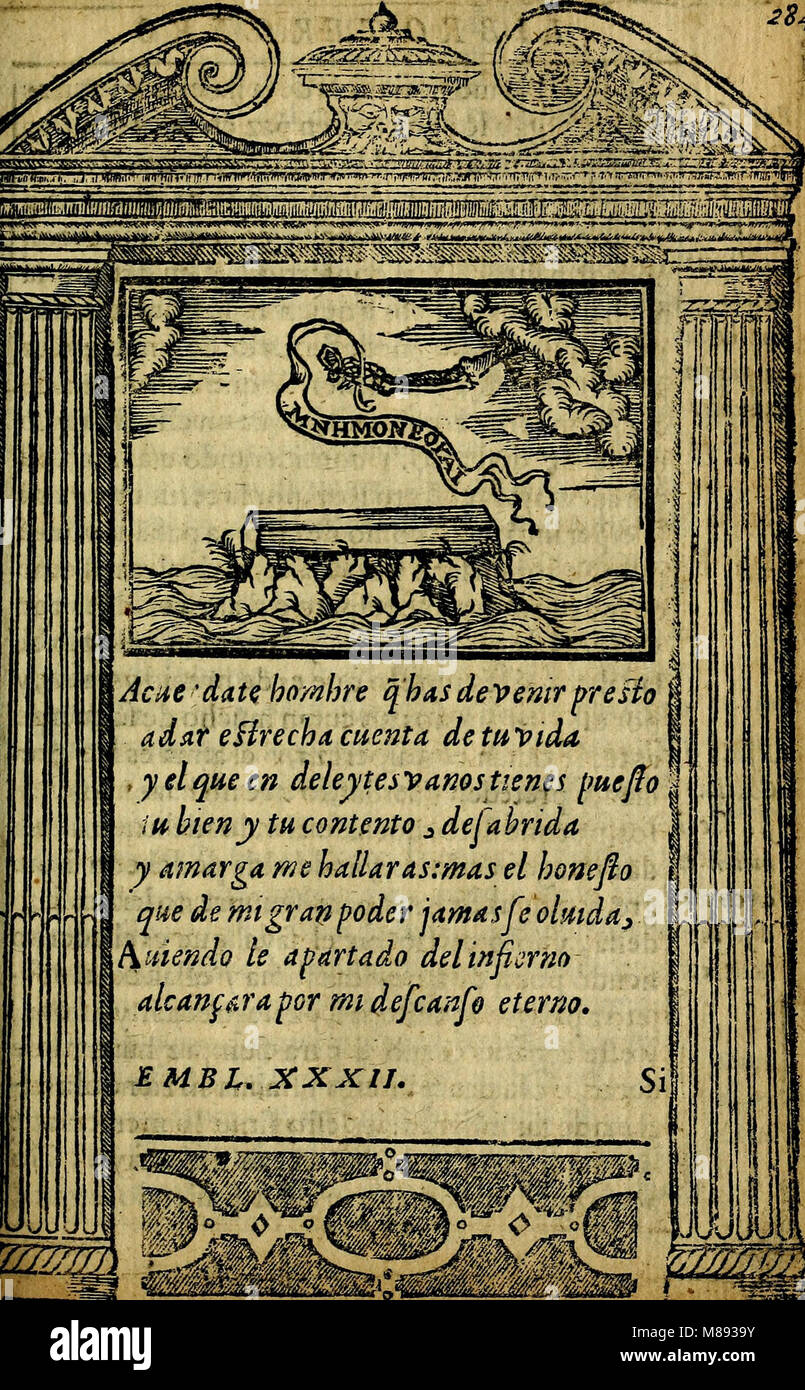 284
ΜΝΗΜΟΝΕΟΡΑΙ
Acuerdate hombre q̃ has de venir presto
a dar estrecha cuenta de tu vida
y el que en deleytes vanos tienes puesto
tu bien y tu contento, desabrida
y amarga me hallaras: mas el honesto
que de mi gran poder jamas se oluida,
Auiendo le apartado del infierno
alcançara por mi descanso eterno.
EMBL. XXXII.
Si
alamy
alamy stock photo
M8939Y
www.alamy.com